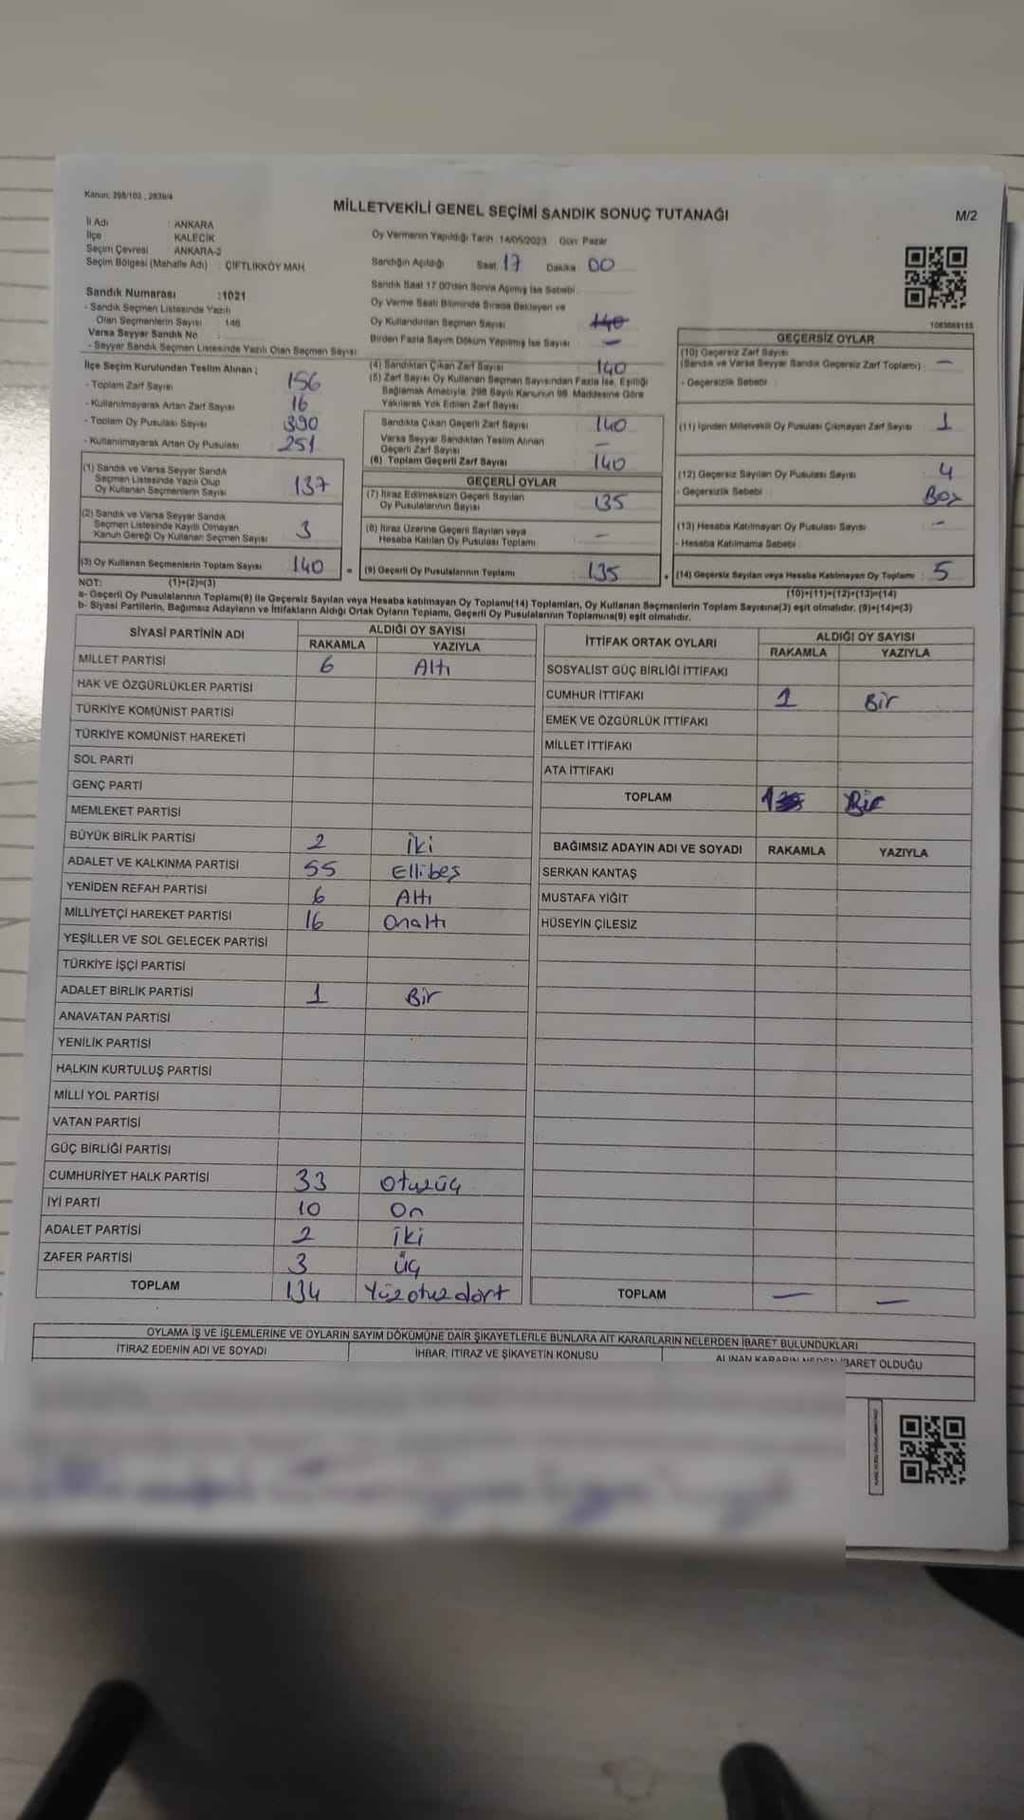 Kanun: 298/102 , 2839/4
MİLLETVEKİLİ GENEL SEÇİMİ SANDIK SONUÇ TUTANAĞI
M/2
İl Adı : ANKARA
İlçe : KALECİK
Seçim Çevresi : ANKARA-3
Seçim Bölgesi (Mahalle Adı) : ÇİFTLİKKÖY MAH.
Sandık Numarası :1021
- Sandık Seçmen Listesinde Yazılı
Olan Seçmenlerin Sayısı : 146
Varsa Seyyar Sandık No :
- Seyyar Sandık Seçmen Listesinde Yazılı Olan Seçmen Sayısı:
Oy Vermenin Yapıldığı Tarih: 14/05/2023 Gün: Pazar
Sandığın Açıldığı Saat: 17 Dakika: 00
Sandık Saat 17.00'den Sonra Açılmış İse Sebebi:
Oy Verme Saati Bitiminde Sırada Bekleyen ve
Oy Kullandırılan Seçmen Sayısı: 140
Birden Fazla Sayım Döküm Yapılmış İse Sayısı: -
İlçe Seçim Kurulundan Teslim Alınan ;
- Toplam Zarf Sayısı 156
- Kullanılmayarak Artan Zarf Sayısı 16
- Toplam Oy Pusulası Sayısı 390
- Kullanılmayarak Artan Oy Pusulası 251
(1) Sandık ve Varsa Seyyar Sandık
Seçmen Listesinde Yazılı Olup
Oy Kullanan Seçmenlerin Sayısı 137
(2) Sandık ve Varsa Seyyar Sandık
Seçmen Listesinde Kayıtlı Olmayan
Kanun Gereği Oy Kullanan Seçmen Sayısı 3
(3) Oy Kullanan Seçmenlerin Toplam Sayısı 140
(4) Sandıktan Çıkan Zarf Sayısı 140
(5) Zarf Sayısı Oy Kullanan Seçmen Sayısından Fazla İse, Eşitliği
Sağlamak Amacıyla, 298 Sayılı Kanunun 98. Maddesine Göre
Yakılarak Yok Edilen Zarf Sayısı
Sandıkta Çıkan Geçerli Zarf Sayısı 140
Varsa Seyyar Sandıktan Teslim Alınan
Geçerli Zarf Sayısı -
(6) Toplam Geçerli Zarf Sayısı 140
GEÇERLİ OYLAR
(7) İtiraz Edilmeksizin Geçerli Sayılan
Oy Pusulalarının Sayısı 135
(8) İtiraz Üzerine Geçerli Sayılan veya
Hesaba Katılan Oy Pusulası Toplamı -
= (9) Geçerli Oy Pusulalarının Toplamı 135
GEÇERSİZ OYLAR
(10) Geçersiz Zarf Sayısı
(Sandık ve Varsa Seyyar Sandık Geçersiz Zarf Toplamı) : -
- Geçersizlik Sebebi :
(11) İçinden Milletvekili Oy Pusulası Çıkmayan Zarf Sayısı : 1
(12) Geçersiz Sayılan Oy Pusulası Sayısı : 4
- Geçersizlik Sebebi : Boş
(13) Hesaba Katılmayan Oy Pusulası Sayısı : -
- Hesaba Katılmama Sebebi :
+ (14) Geçersiz Sayılan veya Hesaba Katılmayan Oy Toplamı : 5
NOT: (1)+(2)=(3)
(10)+(11)+(12)+(13)=(14)
a- Geçerli Oy Pusulalarının Toplamı(9) ile Geçersiz Sayılan veya Hesaba katılmayan Oy Toplamı(14) Toplamları, Oy Kullanan Seçmenlerin Toplam Sayısına(3) eşit olmalıdır. (9)+(14)=(3)
b- Siyasi Partilerin, Bağımsız Adayların ve İttifakların Aldığı Ortak Oyların Toplamı, Geçerli Oy Pusulalarının Toplamına(9) eşit olmalıdır.
SİYASİ PARTİNİN ADI ALDIĞI OY SAYISI
RAKAMLA YAZIYLA
MİLLET PARTİSİ 6 Altı
HAK VE ÖZGÜRLÜKLER PARTİSİ
TÜRKİYE KOMÜNİST PARTİSİ
TÜRKİYE KOMÜNİST HAREKETİ
SOL PARTİ
GENÇ PARTİ
MEMLEKET PARTİSİ
BÜYÜK BİRLİK PARTİSİ 2 İki
ADALET VE KALKINMA PARTİSİ 55 Ellibeş
YENİDEN REFAH PARTİSİ 6 Altı
MİLLİYETÇİ HAREKET PARTİSİ 16 Onaltı
YEŞİLLER VE SOL GELECEK PARTİSİ
TÜRKİYE İŞÇİ PARTİSİ
ADALET BİRLİK PARTİSİ 1 Bir
ANAVATAN PARTİSİ
YENİLİK PARTİSİ
HALKIN KURTULUŞ PARTİSİ
MİLLİ YOL PARTİSİ
VATAN PARTİSİ
GÜÇ BİRLİĞİ PARTİSİ
CUMHURİYET HALK PARTİSİ 33 Otuzüç
İYİ PARTİ 10 On
ADALET PARTİSİ 2 İki
ZAFER PARTİSİ 3 Üç
TOPLAM 134 Yüzotuzdört
İTTİFAK ORTAK OYLARI ALDIĞI OY SAYISI
RAKAMLA YAZIYLA
SOSYALİST GÜÇ BİRLİĞİ İTTİFAKI
CUMHUR İTTİFAKI 1 Bir
EMEK VE ÖZGÜRLÜK İTTİFAKI
MİLLET İTTİFAKI
ATA İTTİFAKI
TOPLAM 1 Bir
BAĞIMSIZ ADAYIN ADI VE SOYADI RAKAMLA YAZIYLA
SERKAN KANTAŞ
MUSTAFA YİĞİT
HÜSEYİN ÇİLESİZ
TOPLAM - -
OYLAMA İŞ VE İŞLEMLERİNE VE OYLARIN SAYIM DÖKÜMÜNE DAİR ŞİKAYETLERLE BUNLARA AİT KARARLARIN NELERDEN İBARET BULUNDUKLARI
İTİRAZ EDENİN ADI VE SOYADI İHBAR, İTİRAZ VE ŞİKAYETİN KONUSU ALINAN KARARIN NEDEN İBARET OLDUĞU